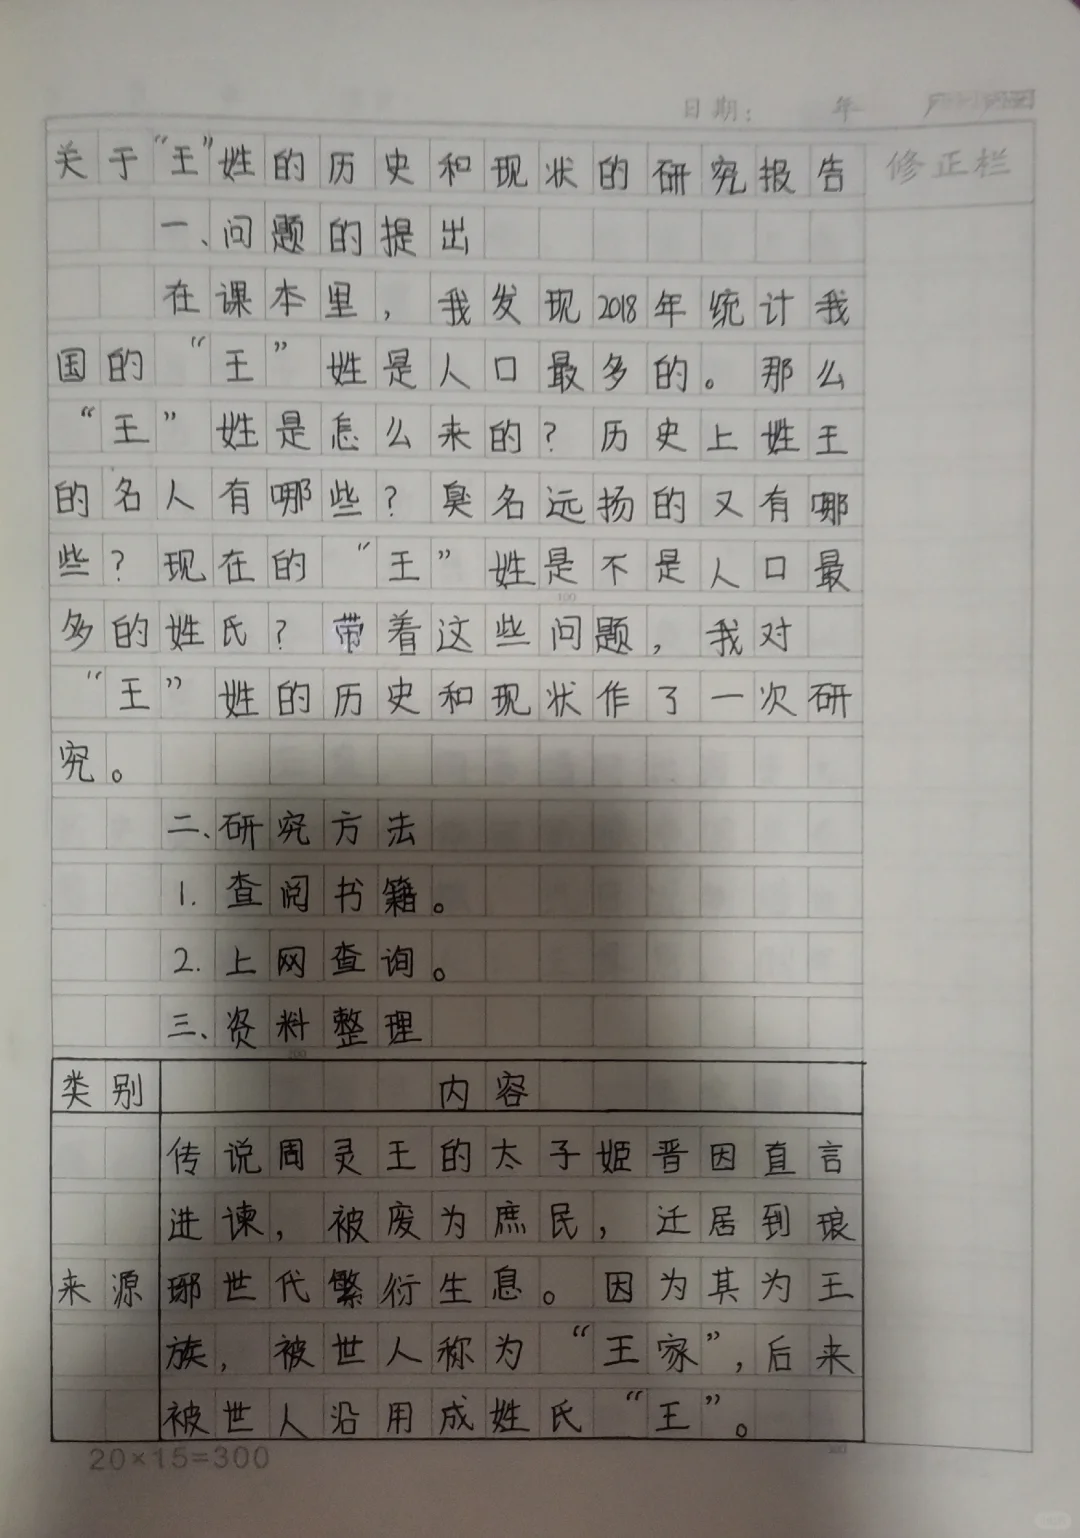 日期： 年
关于“王”姓的历史和现状的研究报告
修正栏
一、问题的提出
在课本里，我发现2018年统计我
国的“王”姓是人口最多的。那么
“王”姓是怎么来的？历史上姓王
的名人有哪些？臭名远扬的又有哪
些？现在的“王”姓是不是人口最
100
多的姓氏？带着这些问题，我对
“王”姓的历史和现状作了一次研
究。
二、研究方法
1.查阅书籍。
2.上网查询。
三、资料整理
200
类别 内容
传说周灵王的太子姬晋因直言
进谏，被废为庶民，迁居到琅
来源 琊世代繁衍生息。因为其为王
族，被世人称为“王家”，后来
被世人沿用成姓氏“王”。
20×15=300
300